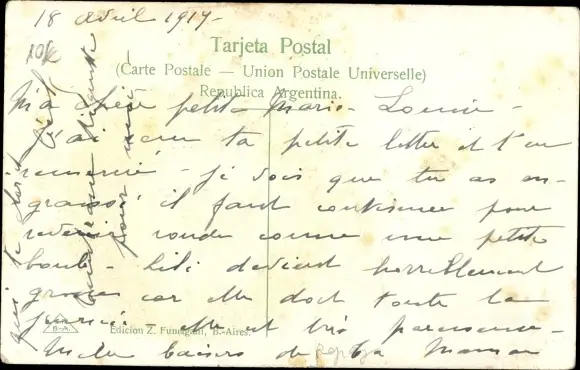 18 avril 1917-
Tarjeta Postal
(Carte Postale — Union Postale Universelle)
Republica Argentina.
Ma chère petite Marie-Louise-
j'ai reçu ta petite lettre et t'en
remercie - je vois que tu as en-
graissé il faut continuer pour
revenir ronde comme une petite
boule - Lili devient horriblement
grosse car elle dort toute la
journée - elle est très paresseuse-
Mille baisers de ta Maman
qui te
pour moi
Edicion Z. Fumagalli, B.-Aires.
B-A.